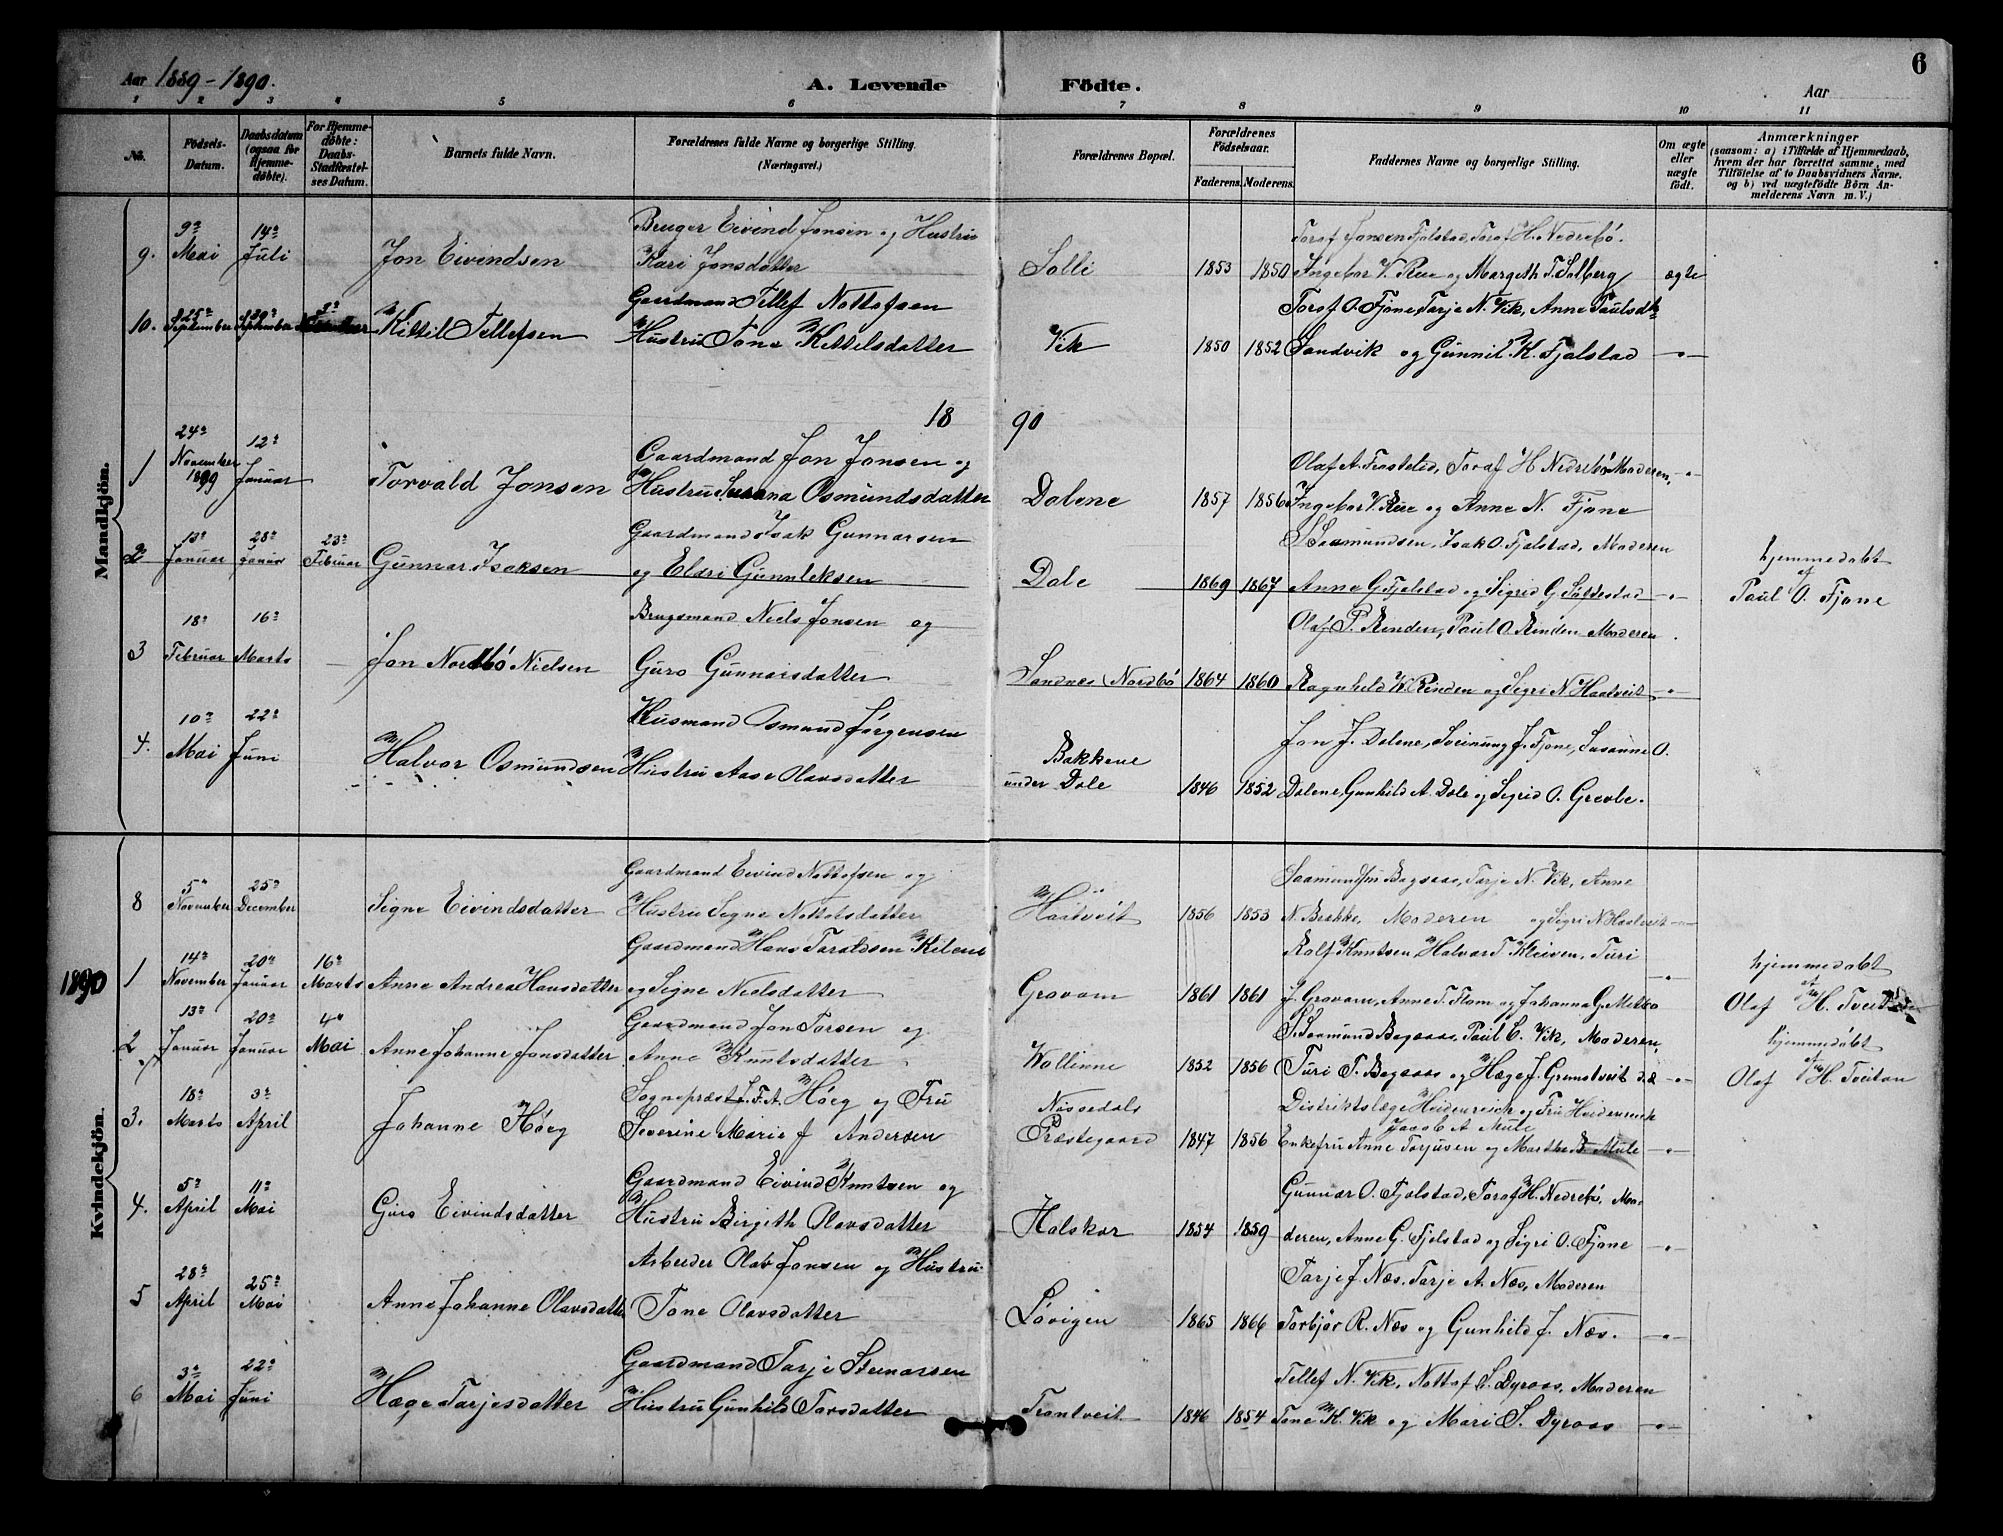 6
Aar 1889-1890.
A. Levende Födte.
Aar
1 2 3 4 5 6 7 8 9 10 11
No.
Födsels-Datum.
Daabsdatum (ogsaa for Hjemme-döbte).
For Hjemme-döbte: Daabs-Stadfæstel-ses Datum.
Barnets fulde Navn.
Forældrenes fulde Navne og borgerlige Stilling. (Næringsvei.)
Forældrenes Bopæl.
Forældrenes Födselsaar.
Faderens. Moderens.
Faddernes Navne og borgerlige Stilling.
Om ægte eller uægte födt.
Anmærkninger
(saasom: a) i Tilfælde af Hjemmedaab, hvem der har forrettet samme, med Tilföielse af to Daabsvidners Navne. og b) ved uægtefödte Börn An-melderens Navn m. V.)
Mandkjön.
9. 9de Mai 14de Juli Jon Eivindsen
Bruger Eivind Jonsen og Hustru
Kari Jonsdatter
Solli 1853 1850
Toraf Jonsen Fjalstad, Toraf H. Nedrebö.
Ingebor V. Rue og Margeth T. Solberg ægte
10. 25de September 29de September Kittil Tellefsen
Gaardmand Tellef Nottofsen
Hustru Tone Kittelsdatter
Vik 1850 1852
Toraf O. Fjone, Tarje N. Vik, Anne Paulsdtr
Sandvik og Gunnil K. Fjalstad -"-
1890
1 24de November 1889 12te Januar Torvald Jonsen
Gaardmand Jon Jonsen og
Hustru Susana Osmundsdatter
Dalene 1857 1856
Olaf A. Toraf H Nedrebö Moderen, -"-
Ingebor V. Rue og Anne N. Fjone
2 13de Januar 28de Januar 23de Februar Gunnar Isaksen
Gaardmand Isak Gunnarsen
og Eldri Gunnleksen
Dale 1869 1867
S Saamundsen, Isak O. Fjalstad, Moderen
Anne G Fjalstad og Sigrid G. -"-
hjemmedöbt af Paul O. Fjone
3 18de Februar 16de Marts Jon Nordbö Nielsen
Brugsmand Niels Jonsen og
Guro Gunnarsdatter
Sandnes (Nordbö 1864 1860
Olaf P. Rinden, Paul O. Rinden Moderen.
Ragnhild K. Rinden og Sigri N Haatveit -"-
4. 10de Mai 22de Juni Halvor Osmundsen
Husmand Osmund Jörgensen
Hustru Aase Olavsdatter
Bakkene under Dale 1846 1852
Jon J. Dalene, Sveinung J. Fjone, Susanne O.
Dalene, Gunhild A. Dale og Sigrid O. Gravbe.
Kvindekjön.
8 5te November 25de December Signe Eivindsdatter
Gaardmand Eivind Nottofsen og
Hustru Signe Nottolsdatter
Haatveit 1856 1853
Bagaas, Tarje N. Vik, Anne
N. Brekke, Moderen og Sigri N Haatveit -"-
1890
1 14de November 20de Januar 16de Marts Anne Andrea Hansdatter
Gaardmand Hans Taraldsen Kilene
og Signe Nielsdatter
Gravom 1861 1861
Ralf Knutsen, Halvard T. Kleiven, Turi
J. Gravom, Anne T. Flom og Johanna G. Metbö -"-
hjemmedöbt af Olaf H. Tveitan
2 13de Januar 20de Januar 4de Mai Anne Johanne Jonsdatter
Gaardmand Jon Torsen og
Anne Knutsdatter
Wallinne 1852 1856
S. Saamund Bagaas, Paul E. Vik, Moderen,
Turi T. Bagaas og Hæge J. Grimstveit -"-
hjemmedöbt af Olaf H. Tveitan
3. 18de Marts 3de April Johanne Höeg
Sognepræst J. F. A. Höeg og Fru
Severine Marie J Andersen
Nissedals Præstegaard 1847 1856
Distriktslæge Heidenreich og Fru Heidenreich
Jacob A Mule
Enkefru Anne Torjusen og Marthe B. Mule -"-
4. 5te April 11te Mai Guro Eivindsdatter
Gaardmand Eivind Knutsen og
Hustru Birgith Olavsdatter
Halskor 1854 1859
Gunnar O. Fjalstad, Toraf H. Nedrebö, Mo-
deren, Anne G. Fjalstad og Sigri O. Fjone -"-
5 28de April 25de Mai Anne Johanne Olavsdatter
Arbeider Olav Jonsen og Hustru
Tone Olavsdatter
Lövigen 1865 1866
Tarje J. Næs, Tarje A. Næs, Moderen
Torbjör R. Næs og Gunhild J. Næs. -"-
6 3de Mai 22de Juni Hæge Tarjesdatter
Gaardmand Tarje Steinarsen
Hustru Gunhild Torsdatter
Trontveit 1846 1854
Tellef N. Vik, Nottof S. Dyraas, Moderen
Tone K. Vik og Mari S. Dyraas -"-